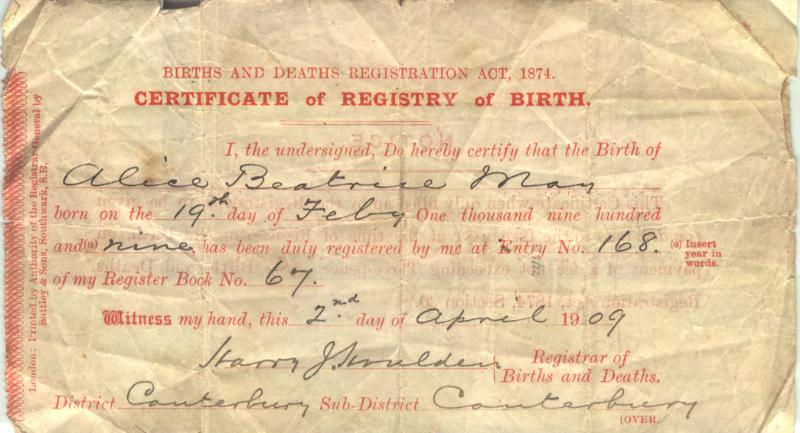 BIRTHS AND DEATHS REGISTRATION ACT, 1874.
CERTIFICATE of REGISTRY of BIRTH.
I, the undersigned, Do hereby certify that the Birth of
Alice Beatrice May
born on the 19th. day of Feby One thousand nine hundred
and (a) nine, has been duly registered by me at Entry No. 168. (a) Insert year in words.
of my Register Book No. 67.
Witness my hand, this 2nd. day of April 1909
Harry J. Registrar of
Births and Deaths.
District Canterbury Sub-District Canterbury
[OVER.
London: Printed by Authority of the Registrar General by
Suttley & Sons, Southwark, S.E.
NOTICE